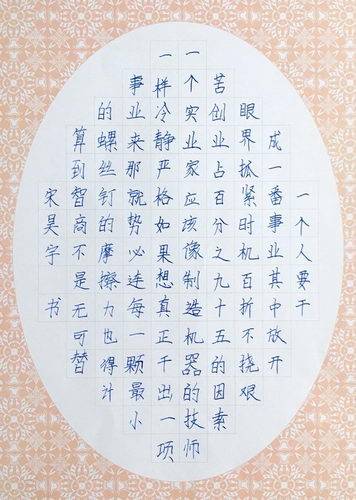 一个人要干
成一番事业其中放开
眼界抓紧时机百折不挠艰
苦创业占百分之九十五的因素
一个实业家应该像制造机器的技师
一样冷静严格如果想真正干出一项
事业来那就势必连每一颗最小
的螺丝钉的摩擦力也得计
算到智商不是无可替
宋昊宇 书